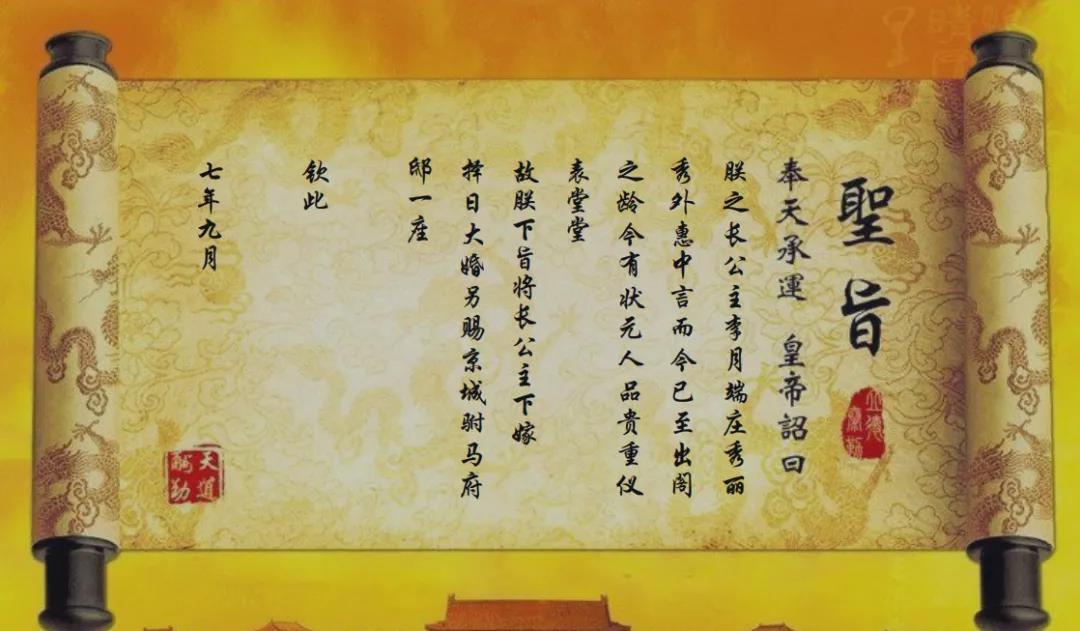 聖旨
奉天承運 皇帝詔曰
朕之长公主李月端庄秀丽
秀外惠中言而今已至出阁
之龄今有状元人品贵重仪
表堂堂
故朕下旨将长公主下嫁
择日大婚另赐京城驸马府
邸一座
钦此
七年九月
天道
酬勤